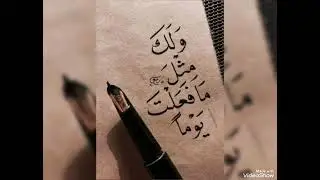 وَلَكَ
مِثْلَ
مَا فَعَلْتَ
يَوْماً
Made with
VideoShow